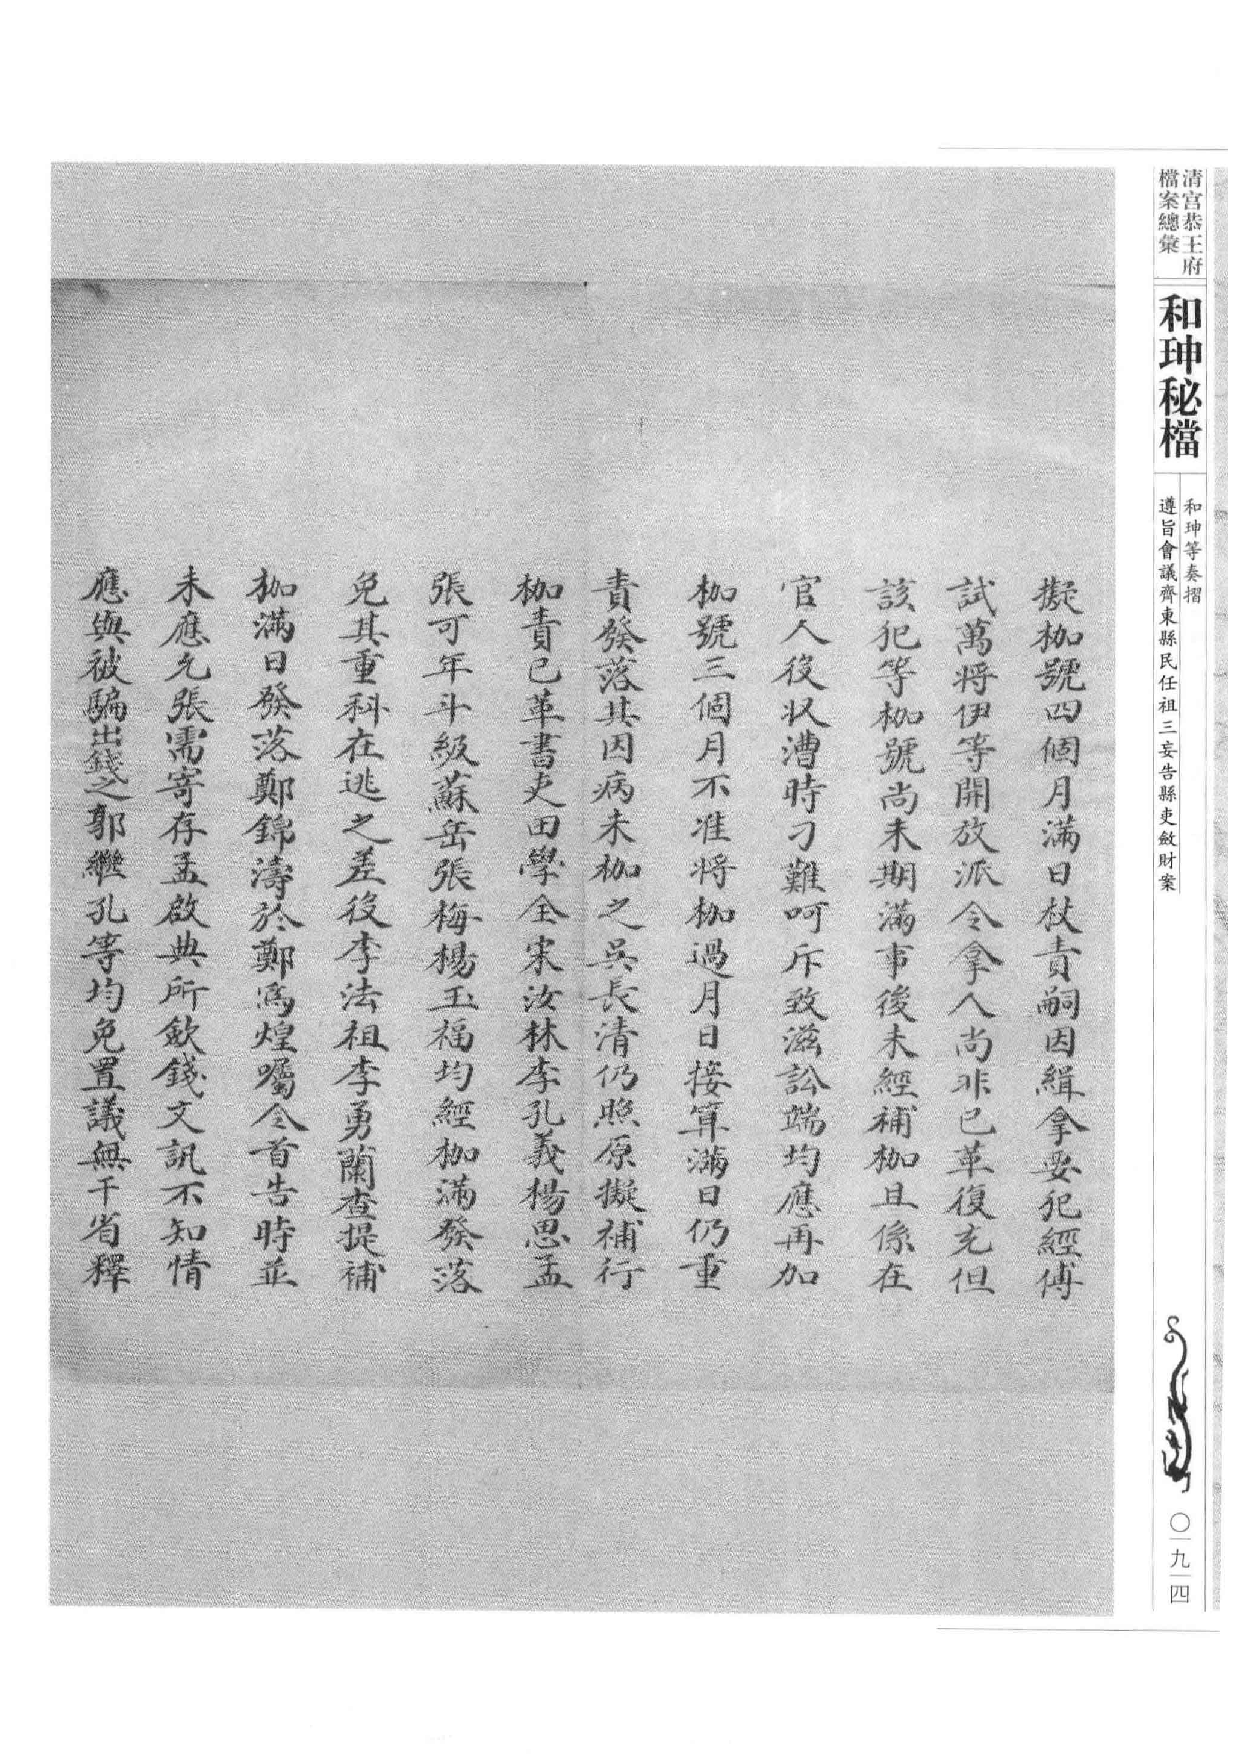 清宮恭王府
檔案總彙
和珅秘檔
和珅等奏摺
遵旨會議齊東縣民任祖三妄告縣吏斂財案
擬枷號四個月滿日杖責嗣因緝拿要犯經傅
試萬将伊等開放派令拿人尚非已革復充但
該犯等枷號尚未期滿事後未經補枷且係在
官人役状漕時刁難呵斥致滋訟端均應再加
枷號三個月不准将枷過月日接算滿日仍重
責發落其因病未枷之吳長清仍照原擬補行
枷責已革書吏田學全宋汝林李孔義楊思孟
張可年斗級蘇岳張梅楊玉福均經枷滿發落
免其重科在逃之差役李法祖李勇蘭查提補
枷滿日發落鄭錦濤於鄭爲煌囑令首告時並
未應允張需寄存孟啟典所斂錢文訊不知情
應與被騙出錢之郭繼孔等均免置議無干省釋
〇一九四